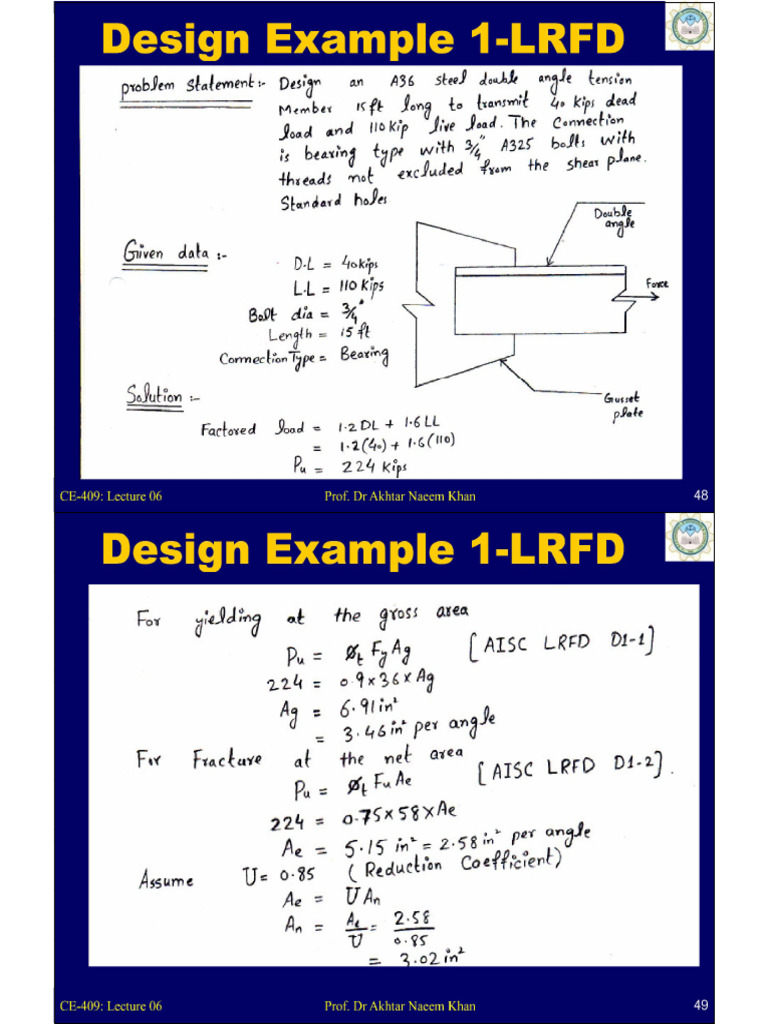 Design Example 1-LRFD
problem statement:- Design an A36 steel double angle tension
Member 15ft long to transmit 40 kips dead
load and 110 kip live load. The Connection
is bearing type with 3/4" A325 bolts with
threads not excluded from the shear plane.
Standard holes
Double
angle
Given data :-
D.L = 40kips
Force
L.L = 110 kips
Bolt dia = 3/4"
Length = 15 ft
Connection Type = Bearing
Solution :-
Gusset
plate
Factored load = 1.2 DL + 1.6 LL
= 1.2(40) + 1.6(110)
Pu = 224 kips
CE-409: Lecture 06 Prof. Dr Akhtar Naeem Khan 48
Design Example 1-LRFD
For yielding at the gross area
Pu = ØtFyAg [AISC LRFD D1-1]
224 = 0.9×36×Ag
Ag = 6.91in²
= 3.46in² per angle
For Fracture at the net area
Pu = ØtFuAe [AISC LRFD D1-2].
224 = 0.75×58×Ae
Ae = 5.15 in² = 2.58in² per angle
Assume U= 0.85 (Reduction Coefficient)
Ae = UAn
An = Ae/U = 2.58/0.85
= 3.02in²
CE-409: Lecture 06 Prof. Dr Akhtar Naeem Khan 49